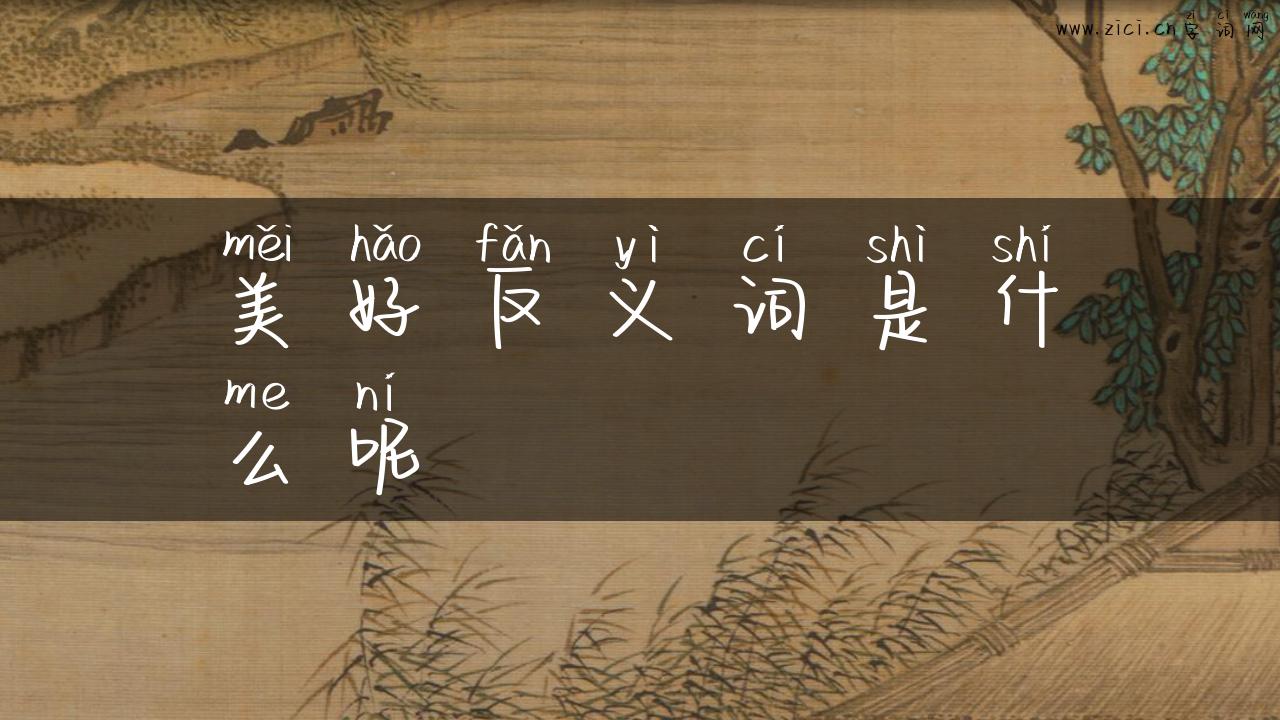 zì cí wǎng
www.zici.cn字词网
měi hǎo fǎn yì cí shì shí
美好反义词是什
me ní
么呢